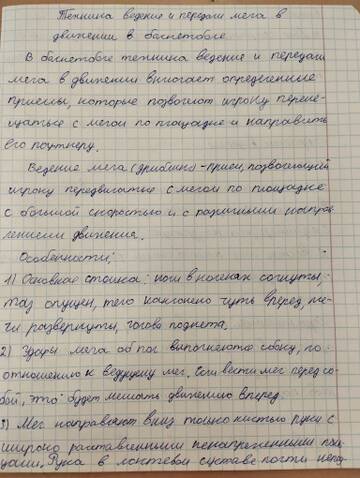 Техника ведение и передачи мяча в
движении в баскетболе.
В баскетболе техника ведение и передачи
мяча в движении включает определенные
приемы, которые позволяют игроку переме-
щаться с мячом по площадке и направить
его партнеру.
Ведение мяча (дриблинг) - прием, позволяющий
игроку передвигаться с мячом по площадке
с большой скоростью и с различными направ-
лениями движения.
Особенности:
1) Основная стойка: ноги в коленях согнуты,
таз опущен, тело наклонено чуть вперед, пле-
чи развернуты, голова поднята.
2) Удары мяча об пол выполняются сбоку, по
отношению к ведущему мяч. Если вести мяч перед со-
бой, это будет мешать движению вперед.
3) Мяч направляют вниз только кистью руки с
широко расставленными ненапряженными паль-
цами. Рука в локтевом суставе почти